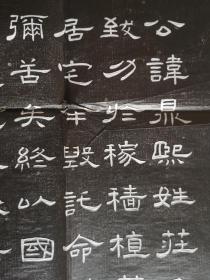 公諱鼎熙姓莊
致力於稼穡植
居宅半毀託命
彌苦矣終以國